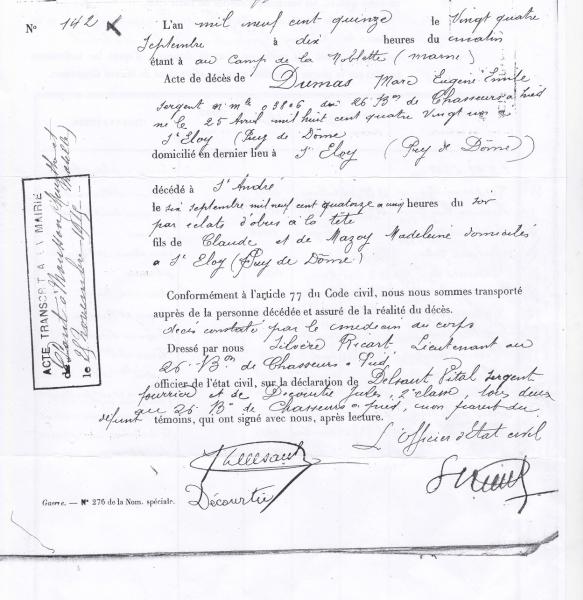 N° 142
L'an mil neuf cent quinze le vingt quatre
Septembre à dix heures du matin
étant à au Camp de la Noblette (Marne)
Acte de décès de Dumas Marc Eugène Emile
Sergent n° mle 03806 du 26 Bon de Chasseurs à pied
né le 25 Avril mil huit cent quatre vingt à
St Eloy (Puy de Dôme
domicilié en dernier lieu à St Eloy (Puy de Dôme)
décédé à St André
le six septembre mil neuf cent quatorze à heures du soir
par éclats d'obus à la tête
fils de Claude et de Mazoy Madeleine domiciliés
à St Eloy (Puy de Dôme)
Conformément à l'article 77 du Code civil, nous nous sommes transporté
auprès de la personne décédée et assuré de la réalité du décès.
décès constaté par le médecin du corps
Dressé par nous Silvère Ricart, Lieutenant au
26 Bon de Chasseurs à Pied
officier de l'état civil, sur la déclaration de Delsaut Vital Sergent
fourrier et de Decourtie Jules, 2e classe, tous deux
au 26 Bon de Chasseurs à pied, non parent du
défunt témoins, qui ont signé avec nous, après lecture.
L'Officier d'Etat civil
Décourtie
Guerre. — N° 276 de la Nom. spéciale.
ACTE TRANSCRIT A LA MAIRIE
de Pont à Mousson
le novembre